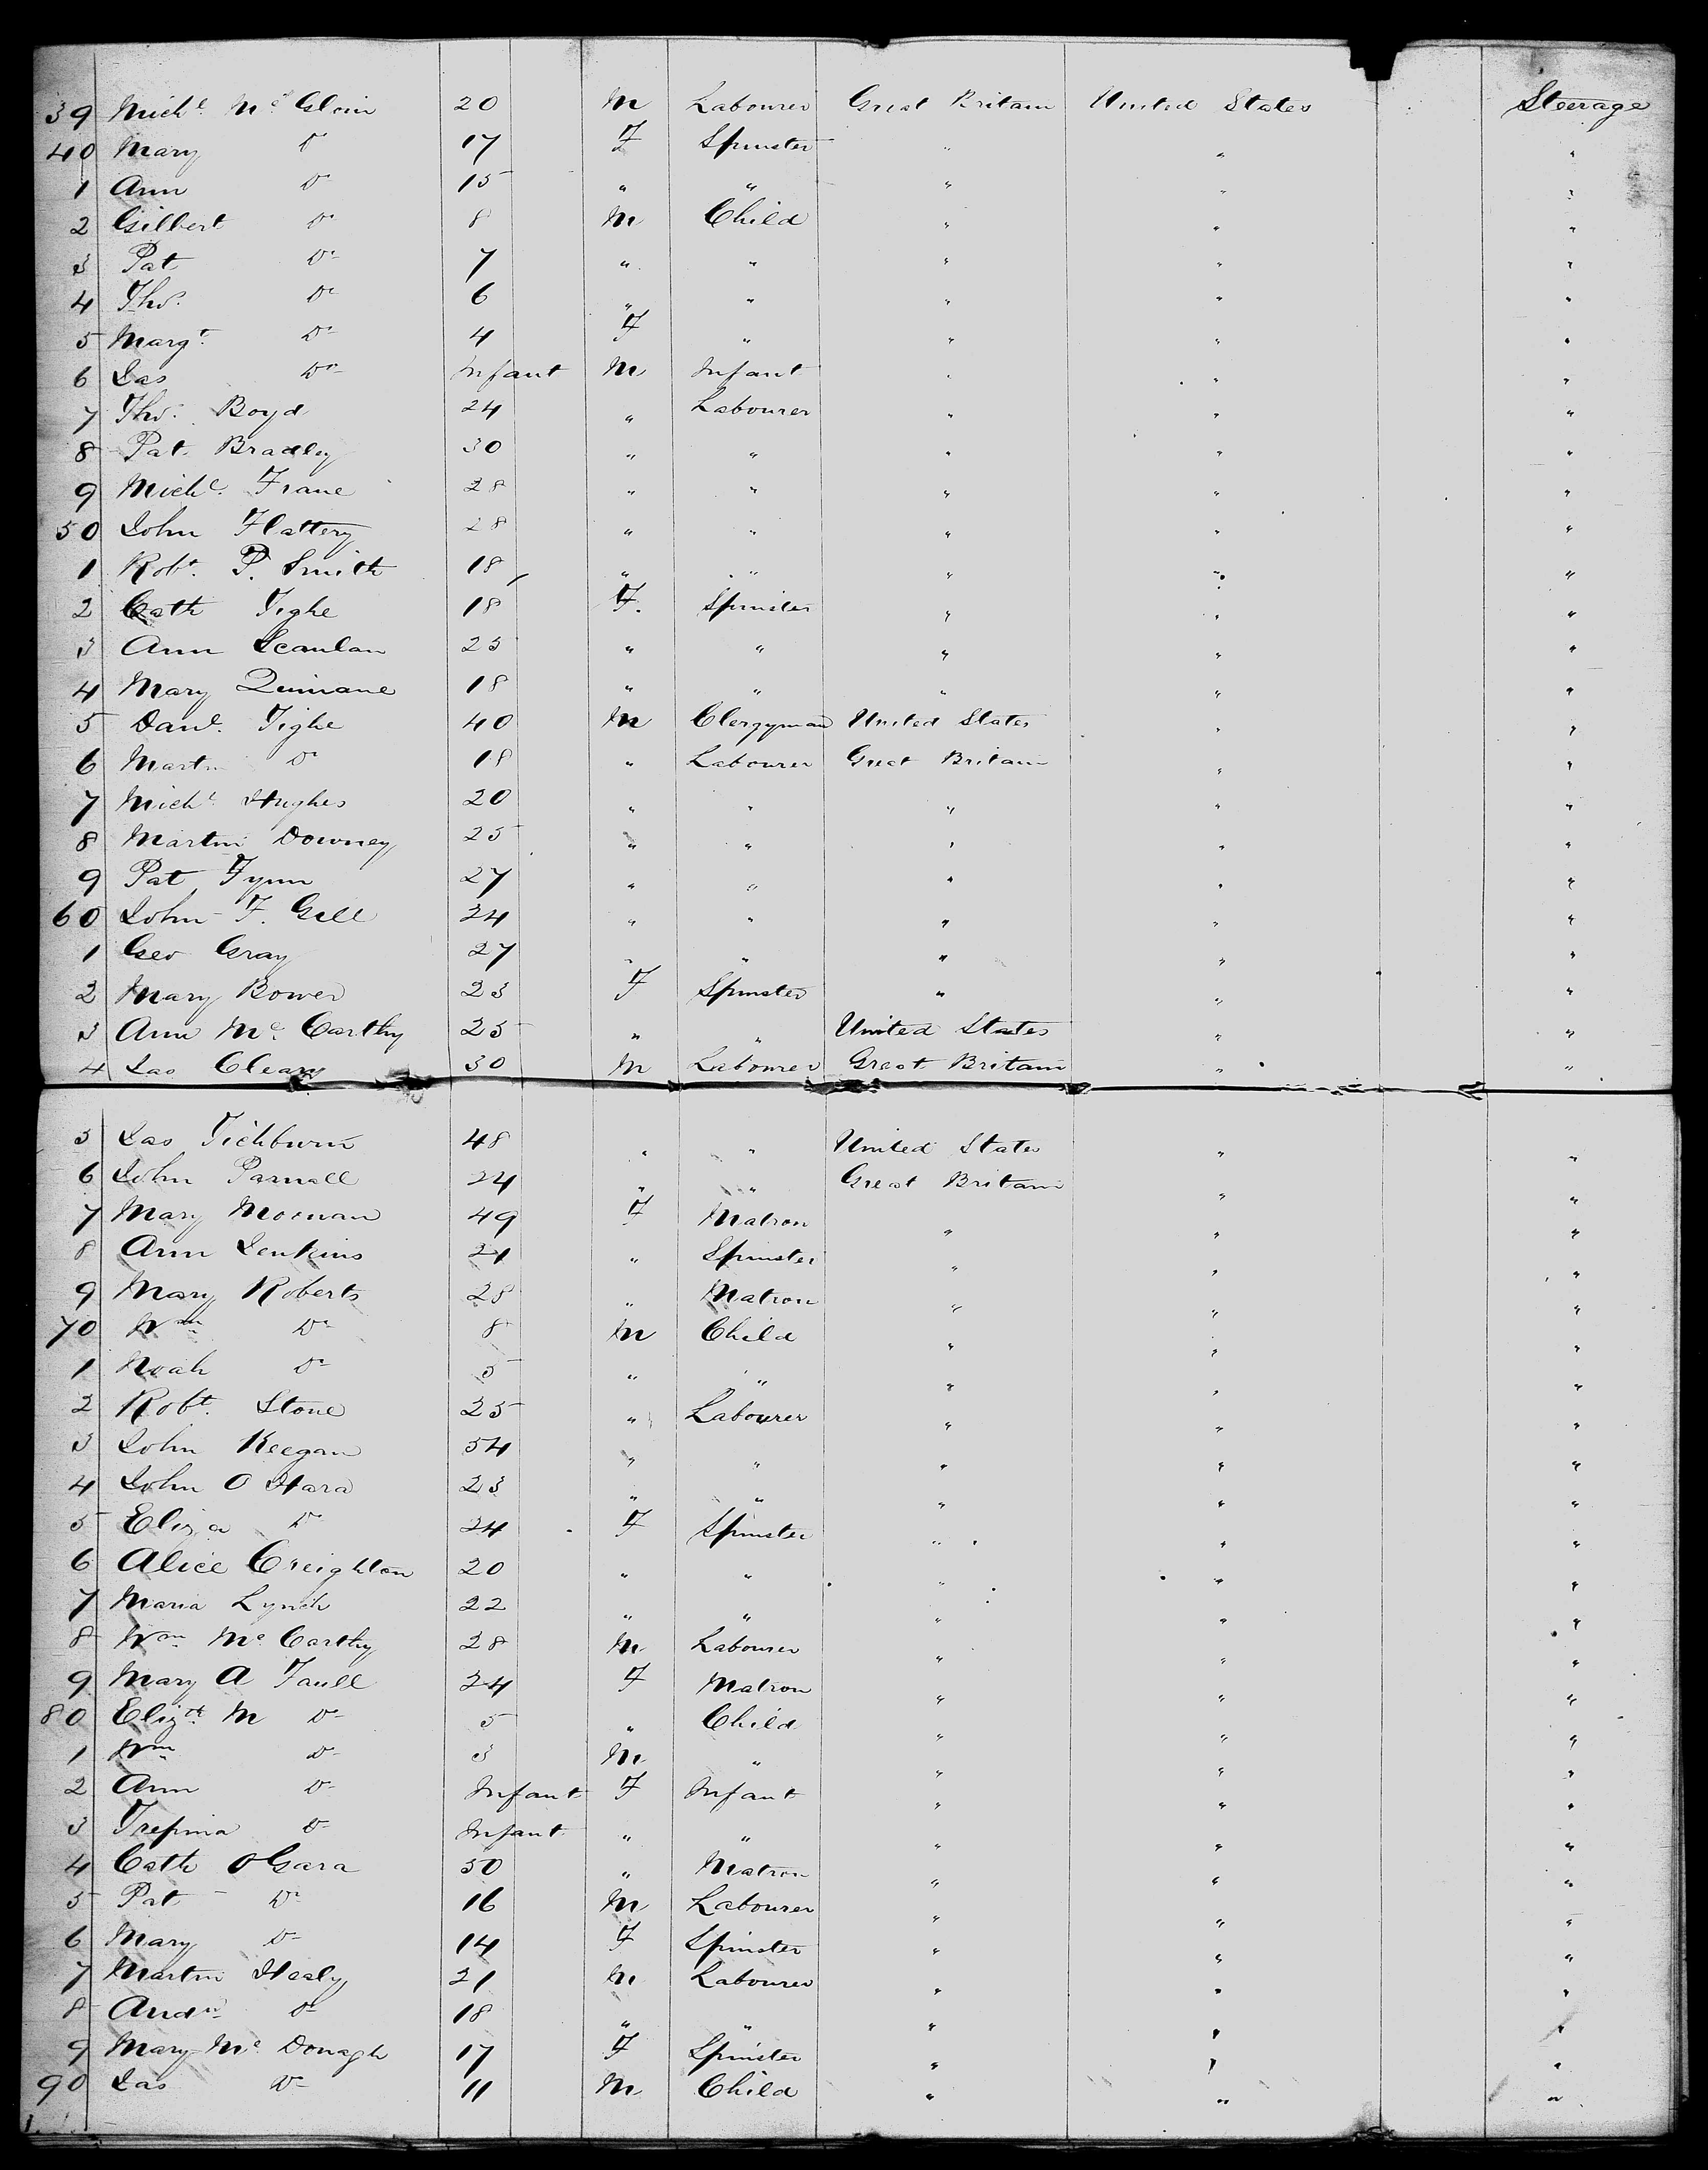 39 Michl. Mc Gloin 20 M Labourer Great Britain United States Steerage
40 Mary Do 17 F Spinster " " "
1 Ann Do 15 " " " " "
2 Gilbert Do 8 M Child " " "
3 Pat Do 7 " " " " "
4 Tho. Do 6 " " " " "
5 Margt. Do 4 F " " " "
6 Jas Do Infant M Infant " " "
7 Tho. Boyd 24 " Labourer " " "
8 Pat. Bradley 30 " " " " "
9 Michl. Frane 28 " " " " "
50 John Flattery 28 " " " " "
1 Robt. P. Smith 18 " " " " "
2 Cath Tighe 18 F. Spinster " " "
3 Ann Scanlan 25 " " " " "
4 Mary Quinane 18 " " " " "
5 Danl. Tighe 40 M Clergyman United States " "
6 Martin Do 18 " Labourer Great Britain " "
7 Michl Hughes 20 " " " " "
8 Martin Downey 25 " " " " "
9 Pat Fynn 27 " " " " "
60 John F. Gill 24 " " " " "
1 Geo Gray 27 " " " " "
2 Mary Bower 23 F Spinster " " "
3 Ann Mc Carthy 25 " " United States " "
4 Jas Cleary 30 M Labourer Great Britain " "
5 Jas Tichburn 48 " " United States " "
6 John Parnall 24 " " Great Britain " "
7 Mary 49 F Matron " " "
8 Ann Jenkins 24 " Spinster " " "
9 Mary Roberts 28 " Matron " " "
70 Wm Do 8 M Child " " "
1 Noah Do 5 " " " " "
2 Robt. Stone 25 " Labourer " " "
3 John Keegan 54 " " " " "
4 John O Hara 23 " " " " "
5 Eliza Do 24 F Spinster " " "
6 Alice Creighton 20 " " " " "
7 Maria Lynch 22 " " " " "
8 Wm. Mc Carthy 28 M Labourer " " "
9 Mary A Faull 24 F Matron " " "
80 Elizth M Do 5 " Child " " "
1 Wm Do 3 M " " " "
2 Ann Do Infant F Infant " " "
3 Do Infant " " " " "
4 Cath OGara 50 " Matron " " "
5 Pat Do 16 M Labourer " " "
6 Mary Do 14 F Spinster " " "
7 Martin Healy 21 M Labourer " " "
8 Andw. Do 18 " " " " "
9 Mary Mc Donagh 17 F Spinster " " "
90 Jas Do 11 M Child " " "